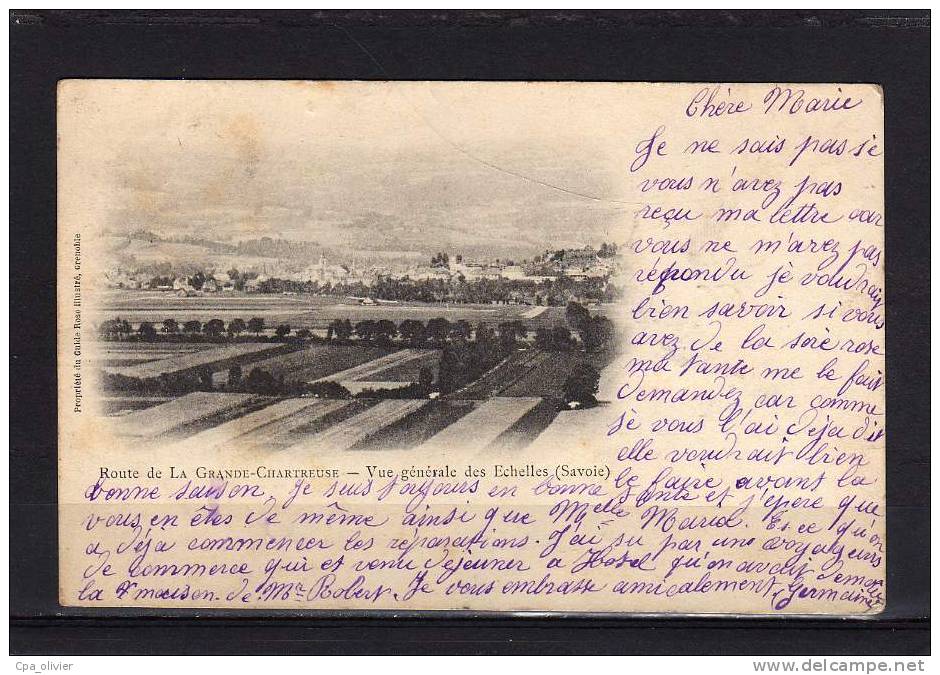 Chère Marie
Je ne sais pas si
vous n'avez pas
reçu ma lettre car
vous ne m'avez pas
répondu je voudrais
bien savoir si vous
avez de la soie rose
ma tante me le fait
demandez car comme
je vous l'ai déja dit
elle voudrait bien
le faire avant la
bonne saison. Je suis toujours en bonne santé et j'épère que
vous en êtes de même ainsi que Melle Maria. Es ce qu'on
a déja commencer les réparations. J'ai su par une voyageurs
de commerce qui et venu déjeuner a Hotel qu'on avait démoli
la maison de Mr Robert. Je vous embrasse amicalement
Germaine
Propriété du Guide Rose Illustré, Grenoble
Route de LA GRANDE-CHARTREUSE — Vue générale des Echelles (Savoie)
Cpa_olivier
http://www.delcampe.net